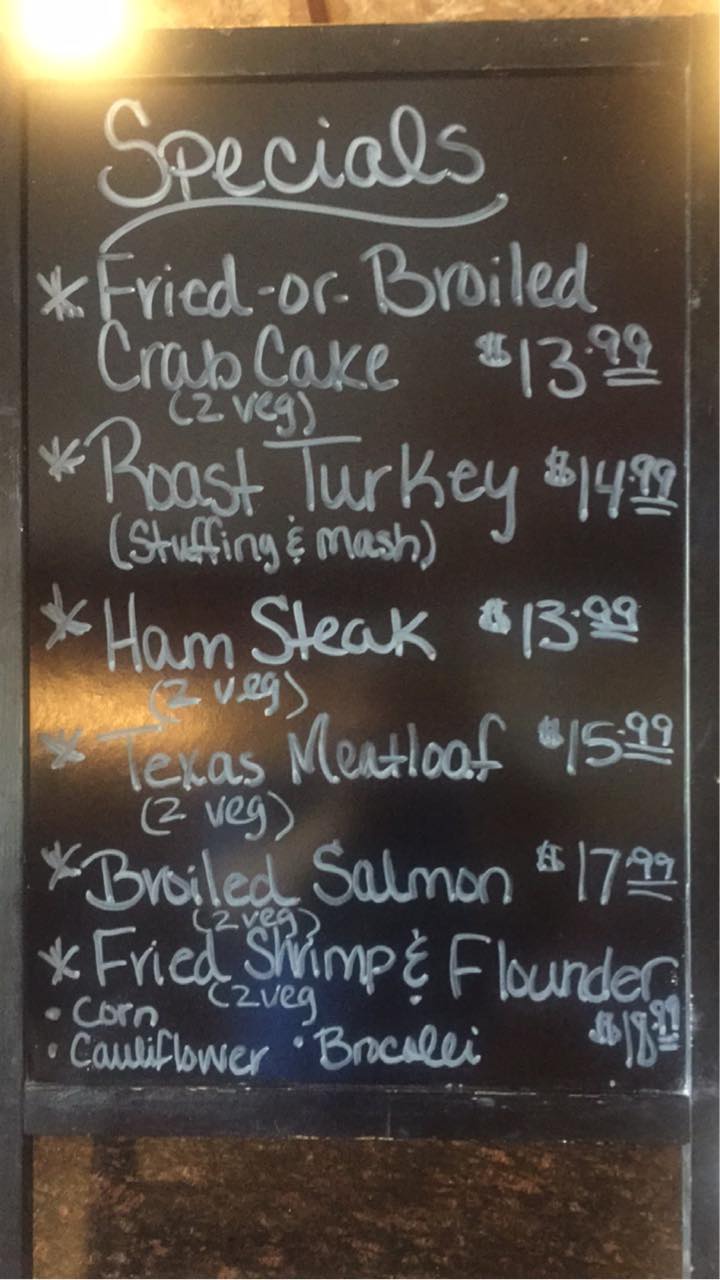 Specials
* Fried-or-Broiled
Crab Cake $13.99
(2 veg)
* Roast Turkey $14.99
(Stuffing & Mash)
* Ham Steak $13.99
(2 veg)
* Texas Meatloaf $15.99
(2 veg)
* Broiled Salmon $17.99
(2 veg)
* Fried Shrimp & Flounder
(2 veg
• Corn $18.99
• Cauliflower • Brocolli